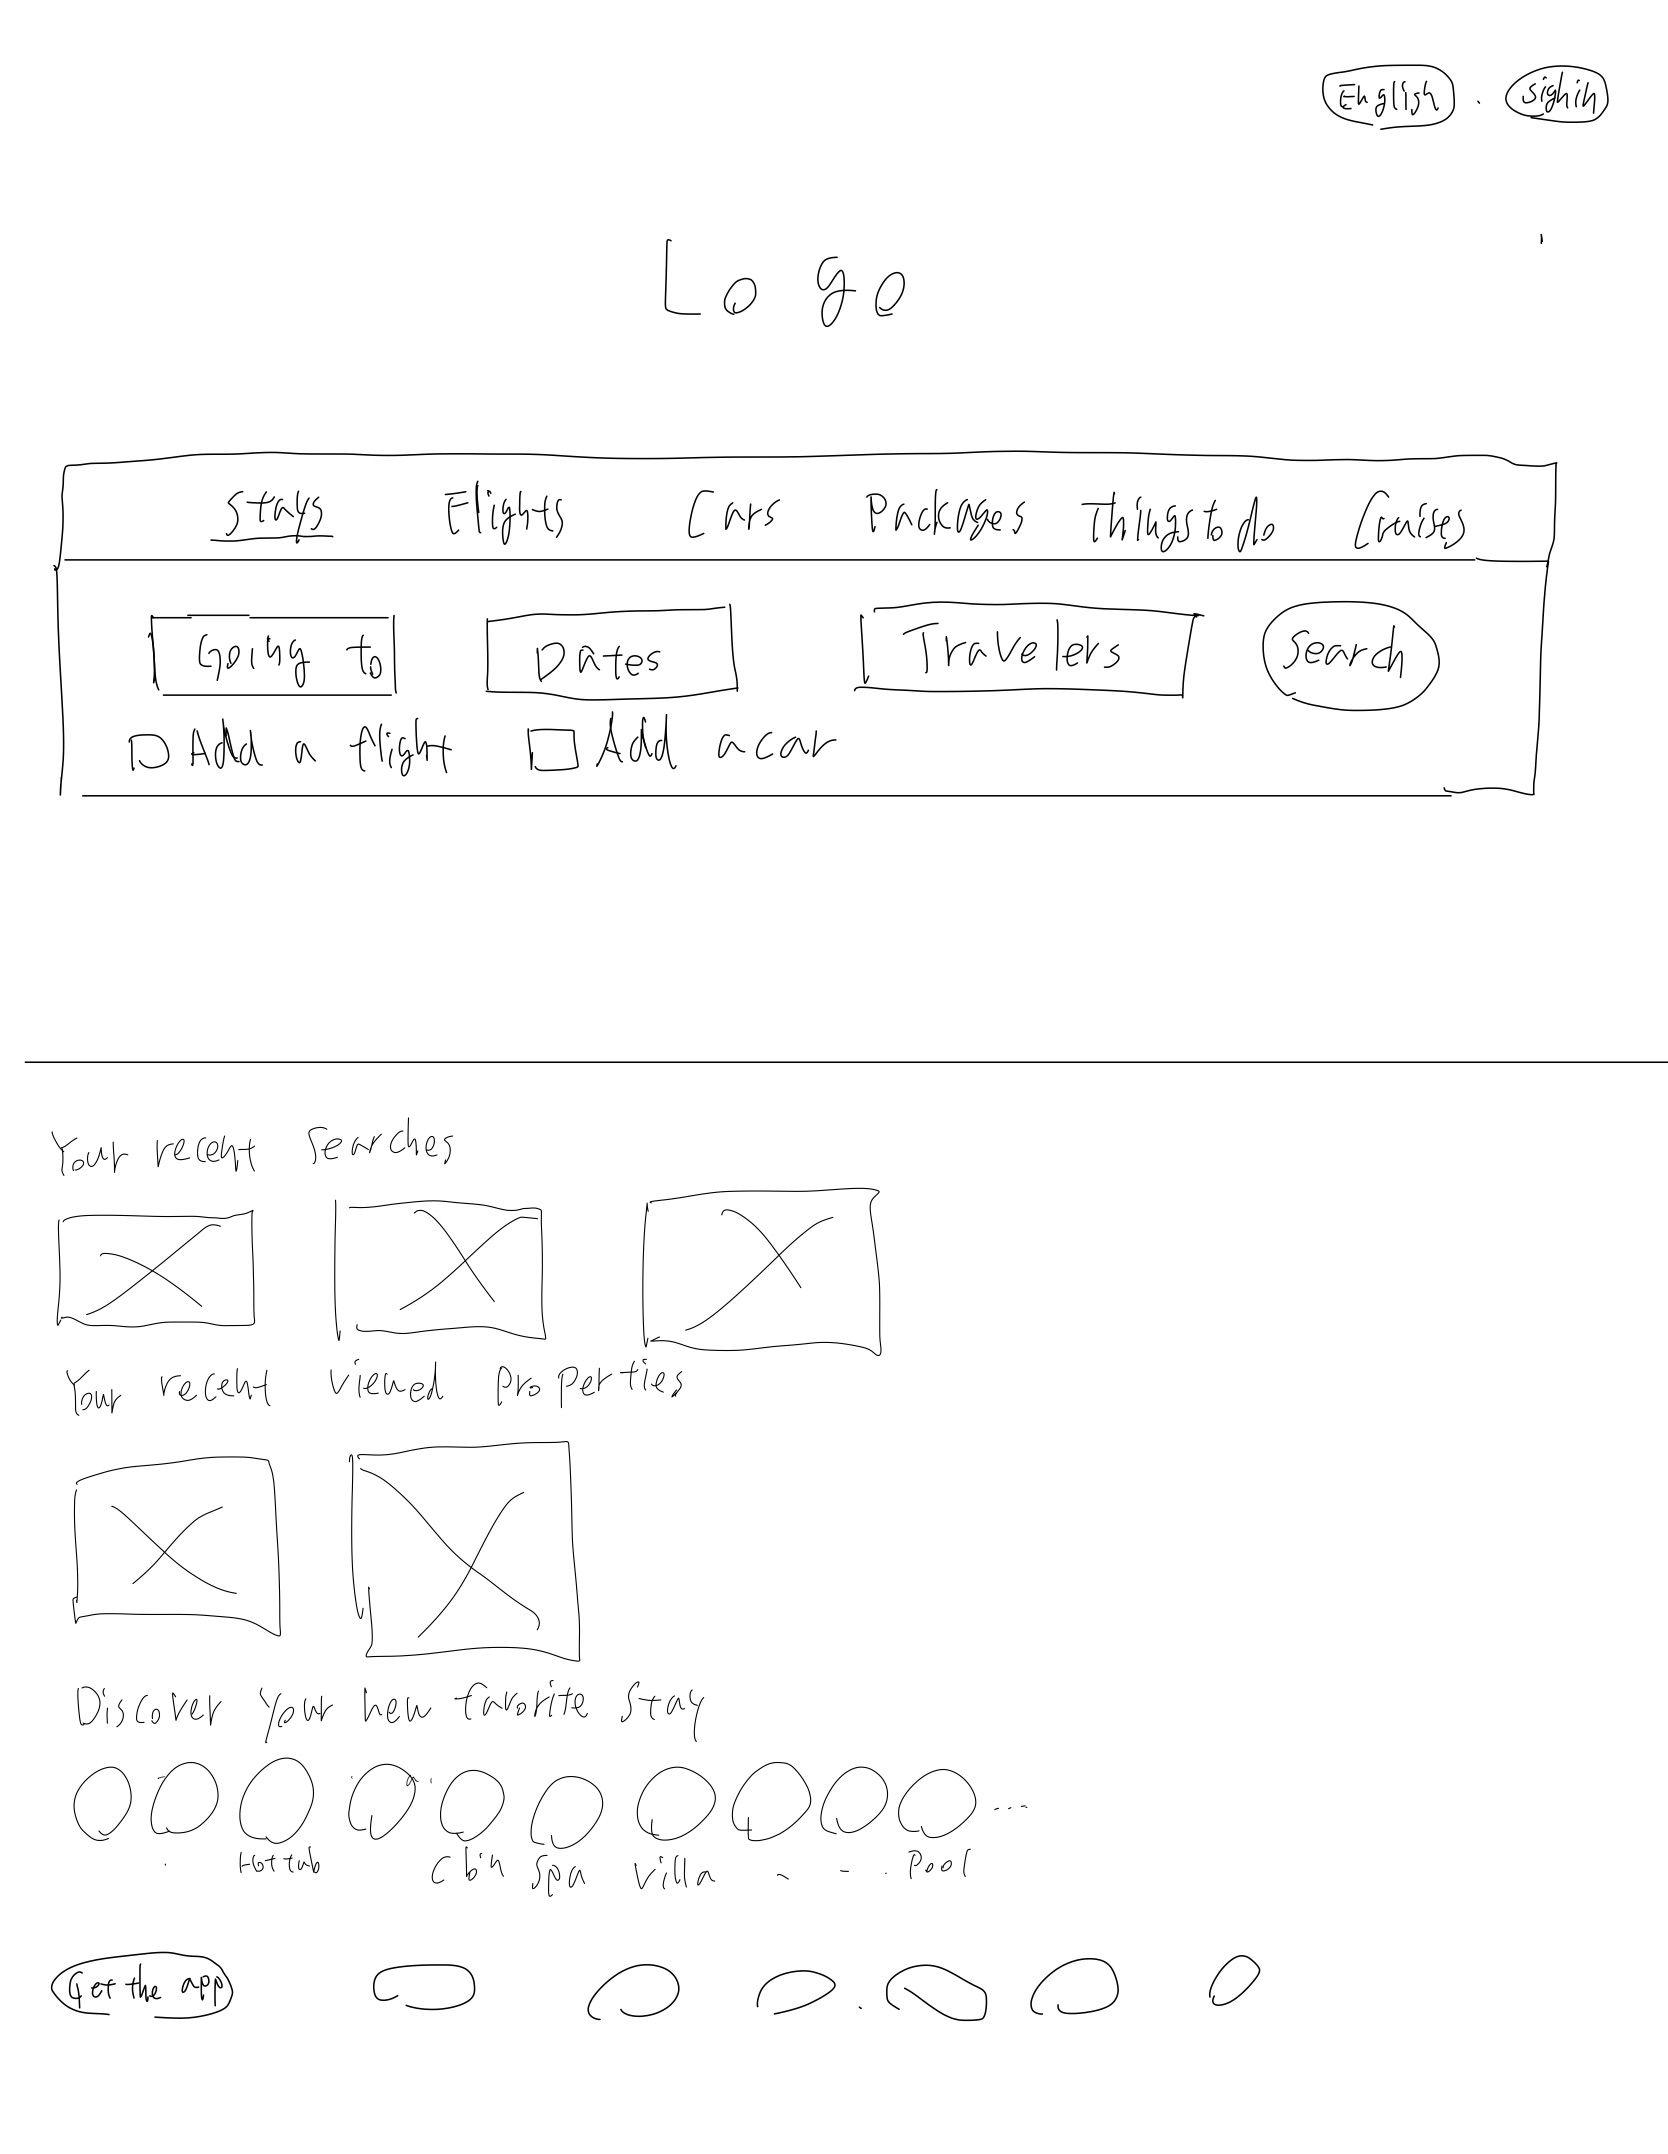 English sighin
Logo
Stays Flights Cars Packages Things to do Cruises
Going to Dates Travelers Search
Add a flight Add a car
Your recent searches
Your recent viewed properties
Discover your new favorite stay
Hot tub Cbin Spa Villa Pool
Get the app